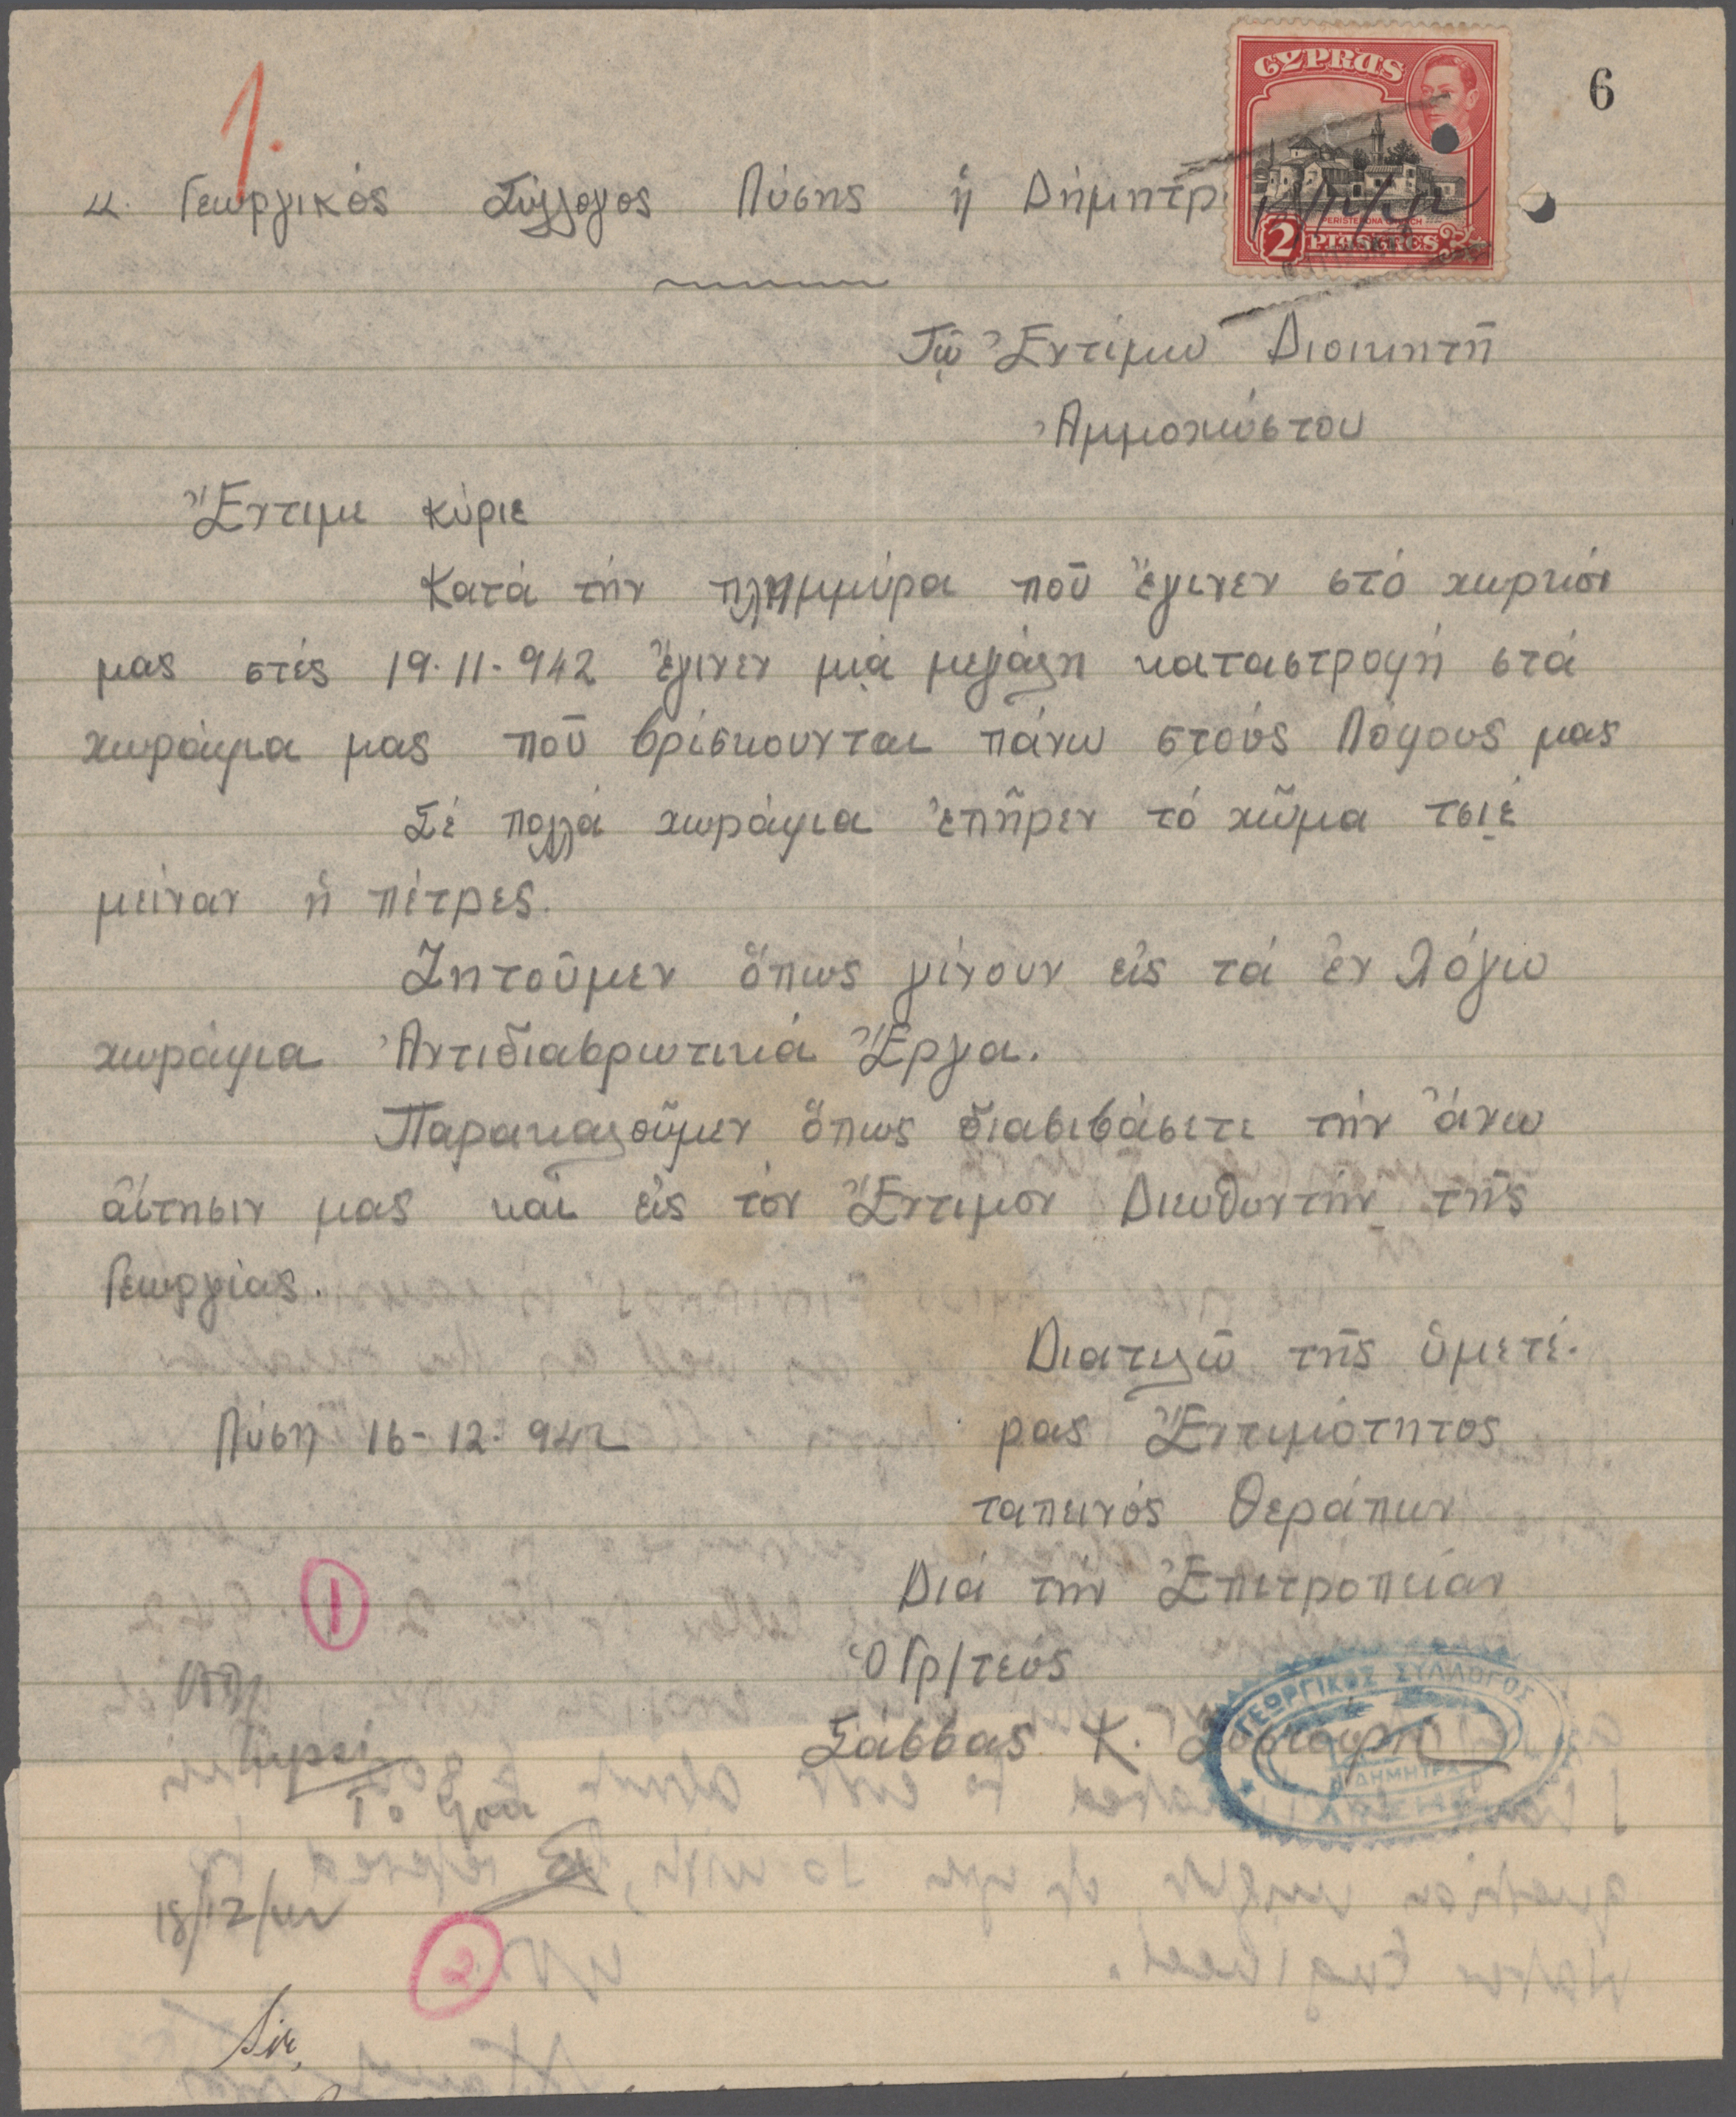 6
1.
CYPRUS
PERISTERONA CHURCH
2 PIASTRES
Γεωργικός Σύλλογος Πύσης ἡ Δήμητρ
Τῷ Ἐντίμω Διοικητῆ
Ἀμμοχώστου
Ἔντιμε κύριε
Κατά τήν πλημμύρα ποῦ ἔγινεν στό χωρκόν
μας στές 19.11.942 ἔγινεν μιά μεγάλη καταστροφή στά
χωράφια μας ποῦ βρίσκουνται πάνω στούς Λόφους μας
Σέ πολλά χωράφια ἐπῆρεν τό χῶμα τσιέ
μείναν ἡ πέτρες.
Ζητοῦμεν ὅπως γίνουν εἰς τά ἐν λόγω
χωράφια Ἀντιδιαβρωτικά Ἔργα.
Παρακαλοῦμεν ὅπως διαβιβάσετε τήν ἄνω
αἴτησιν μας καί εἰς τόν Ἔντιμον Διευθυντήν τῆς
Γεωργίας.
Διατελῶ τῆς ὑμετέ.
Πύση 16-12-942 ρας Ἐντιμότητος
ταπεινός θεράπων
Διά τήν Ἐπιτροπείαν
1
Ὁ Γρ/τεύς
Σάββας Κ.
ΓΕΩΡΓΙΚΟΣ ΣΥΛΛΟΓΟΣ
Η ΔΗΜΗΤΡΑ
18/12/42
2
Sir,